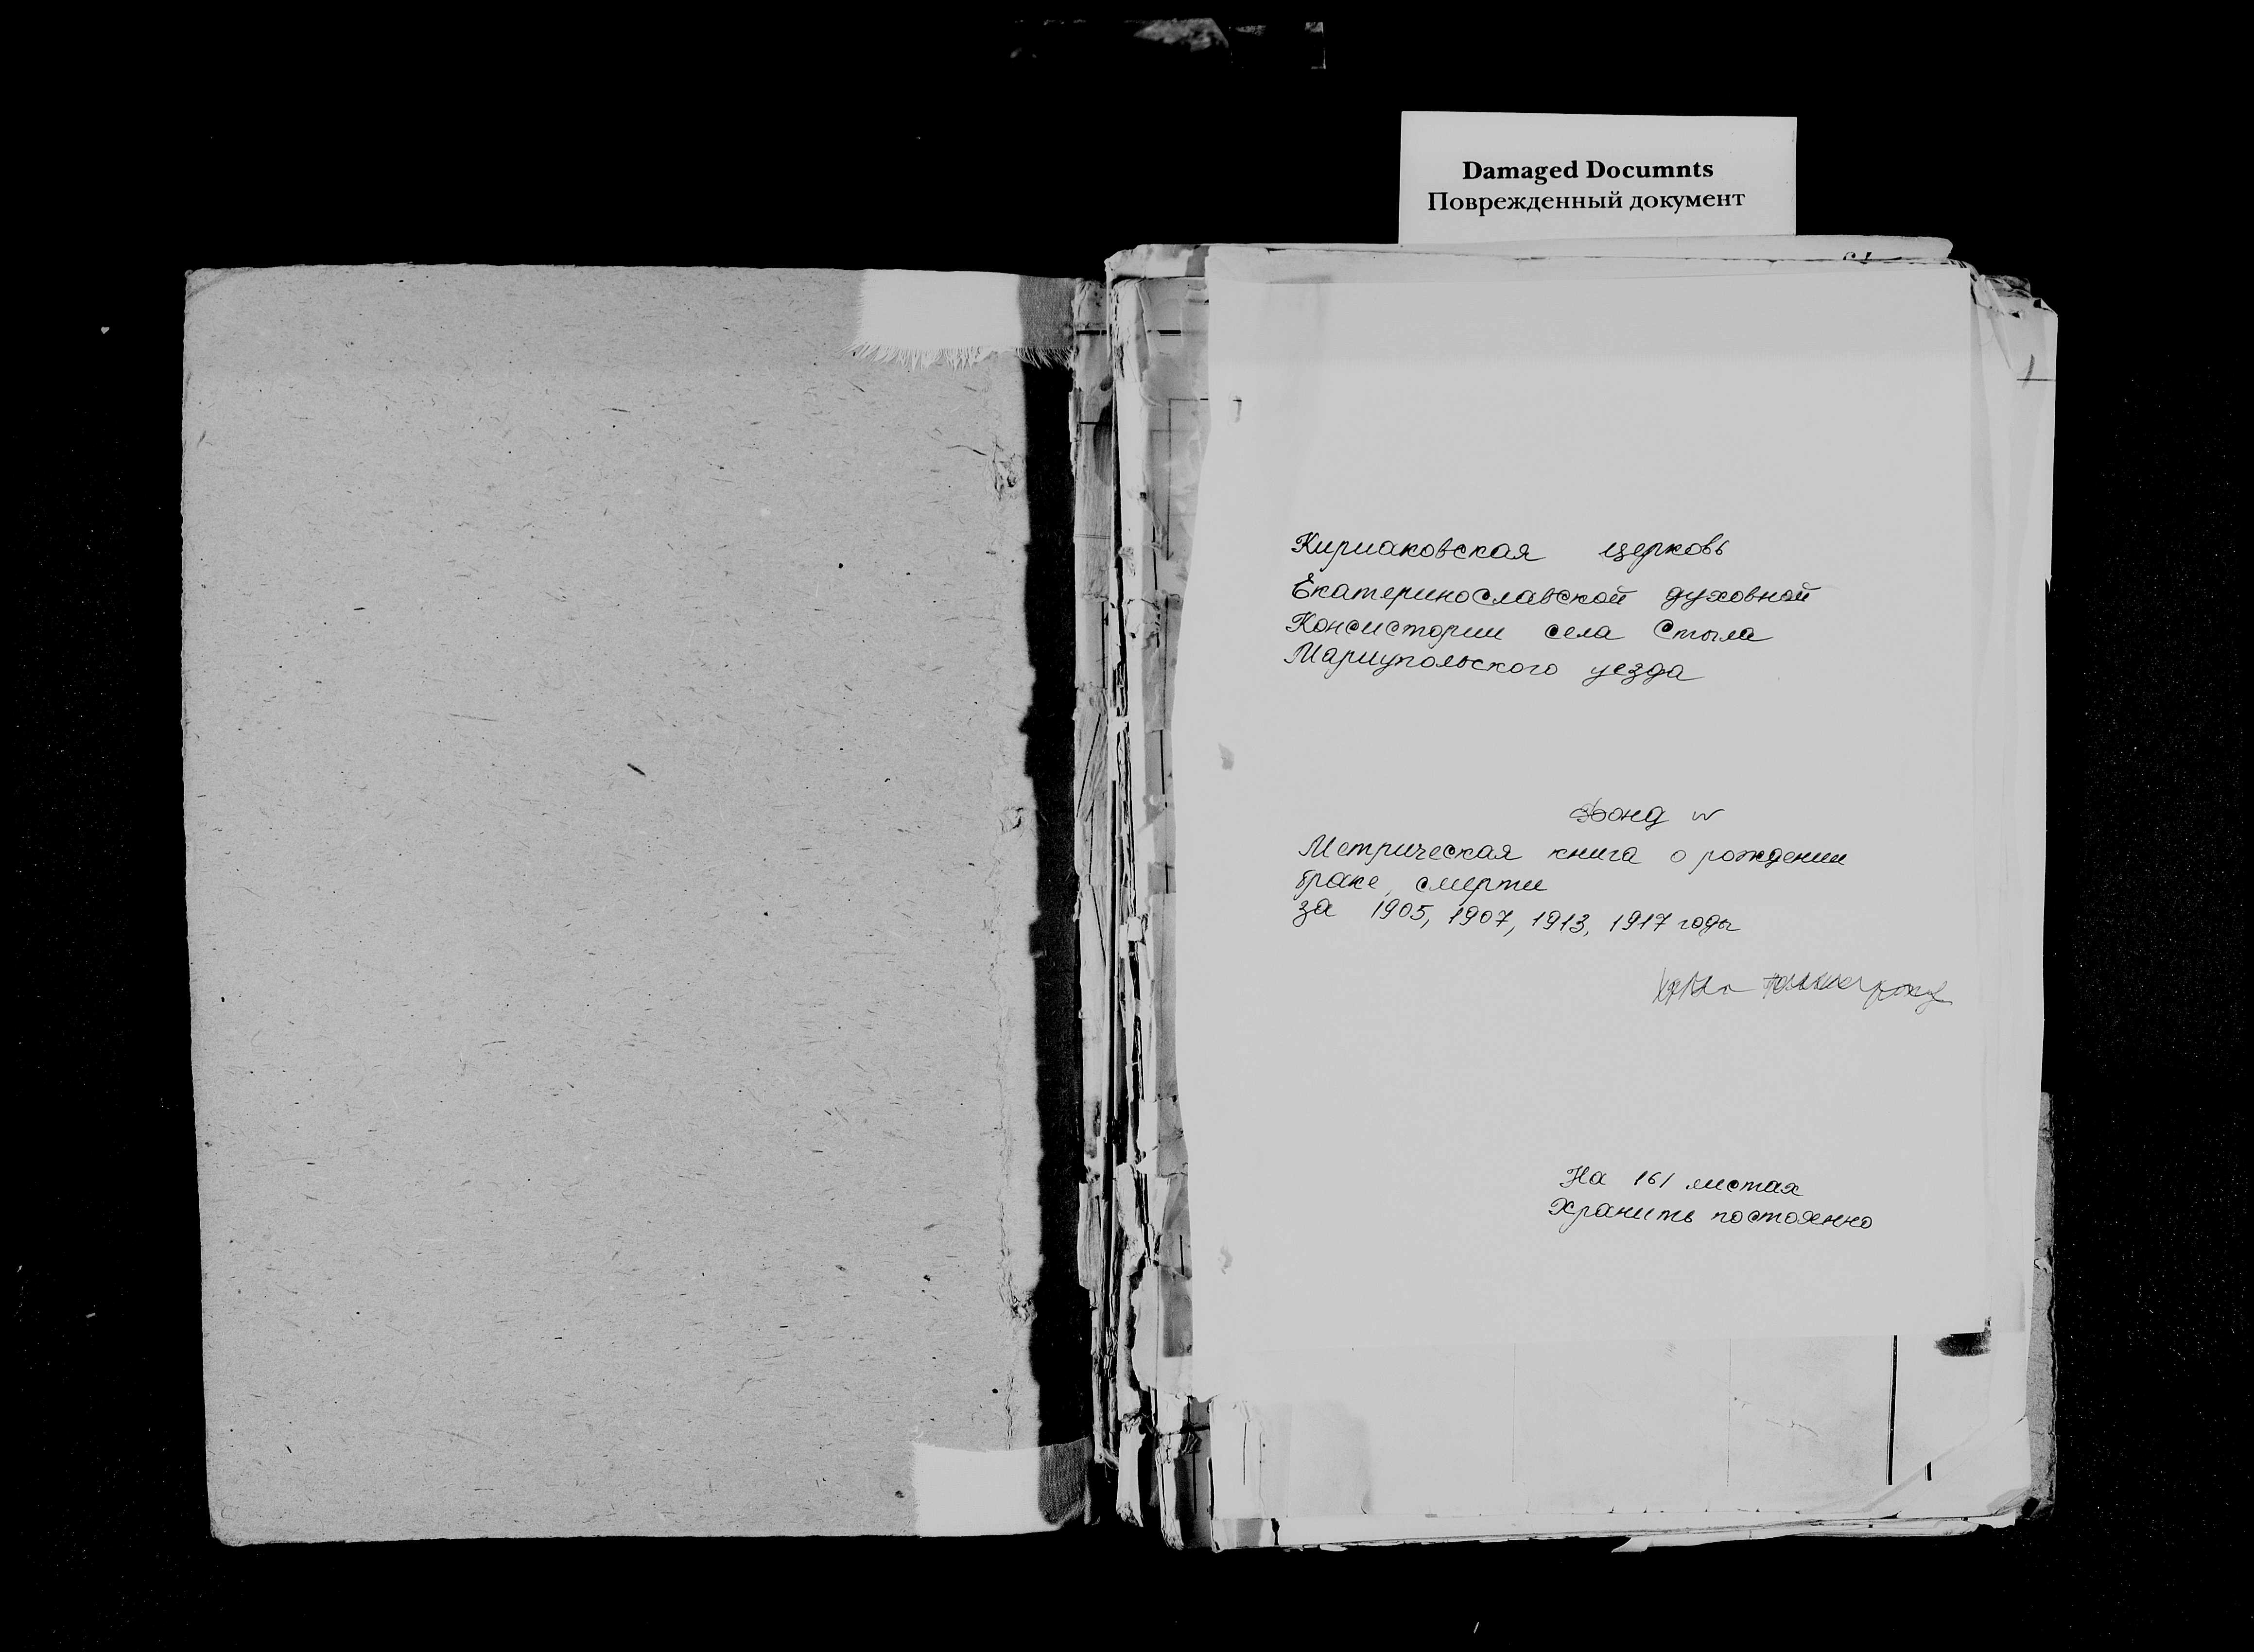 Damaged Documnts
Поврежденный документ
Кириаковская церковь
Екатеринославской духовной
Консистории села Стыла
Мариупольского уезда
Фонд №
Метрическая книга о рождении
браке, смерти
за 1905, 1907, 1913, 1917 годы
На 161 листах
Хранить постоянно